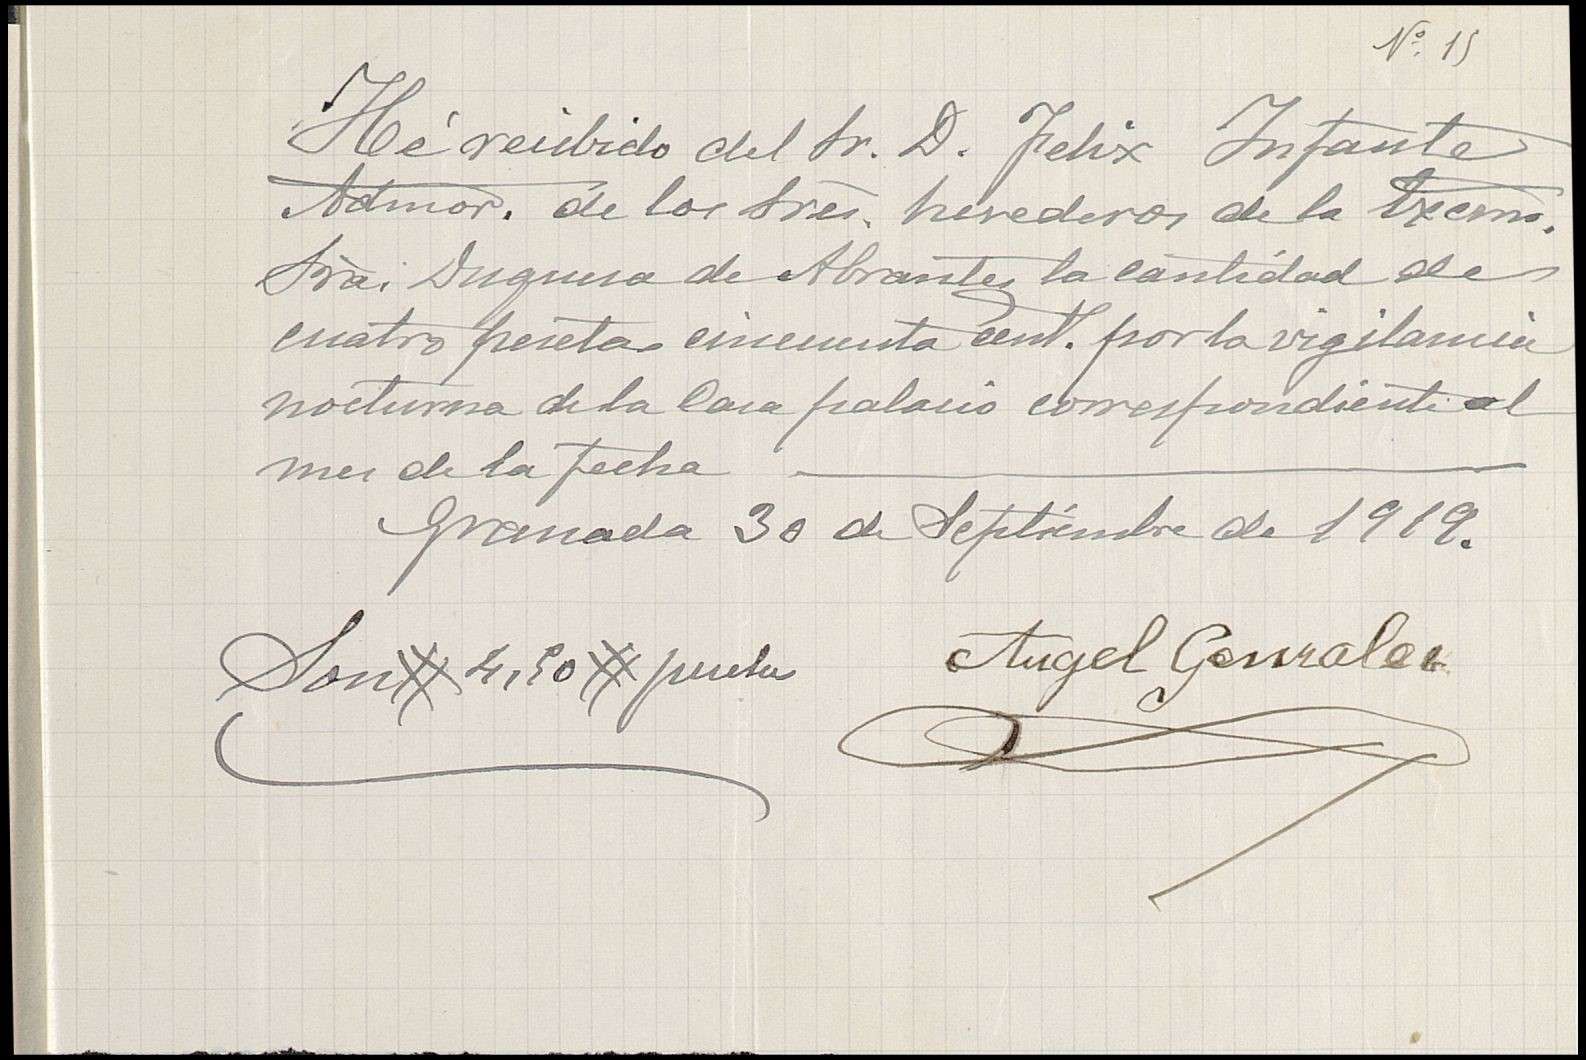 Nº. 15
Hé recibido del Sr. D. Felix Infante
Admor. de los Sres. herederos de la Excma.
Sra. Duquesa de Abrantes la cantidad de
cuatro pesetas cincuenta cent. por la vigilancia
nocturna de la Casa palacio correspondiente al
mes de la fecha
Granada 30 de Septiembre de 1919.
Son # 4,50 # pesetas
Angel Gonzalez